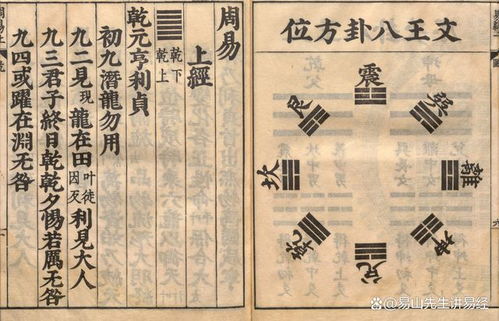 文王八卦方位
震
巽
離
坤
兌
乾
坎
艮
周易
上經
乾下
乾上
乾元亨利貞
初九潛龍勿用
九二見現龍在田叶徒因反利見大人
九三君子終日乾乾夕惕若厲无咎
九四或躍在淵无咎
@易山先生讲易经